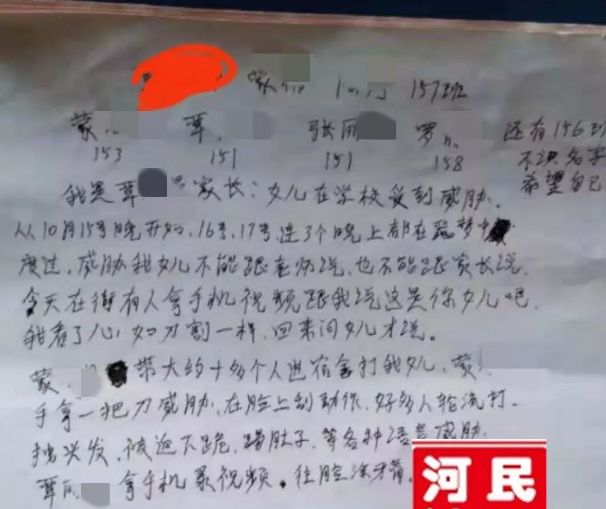 蒙 157班
蒙 覃 张丽 罗 还有156班
153 151 151 158 不识名字
希望自己
我是覃 家长：女儿在学校受到威胁、
从10月15号晚开始、16号、17号、连3个晚上都在恶梦中
度过，威胁我女儿不能跟老师说，也不能跟家长说，
今天在街有人拿手机视频跟我说这是你女儿吧，
我看了心如刀割一样，回来问女儿才说。
蒙 带大约十多个人进宿舍打我女儿，蒙
手拿一把刀威胁，在脸上刮动作，好多人轮流打、
头发、被迫下跪、踢肚子、等各种语言威胁
覃 拿手机录视频，往脸涂牙膏，
河民